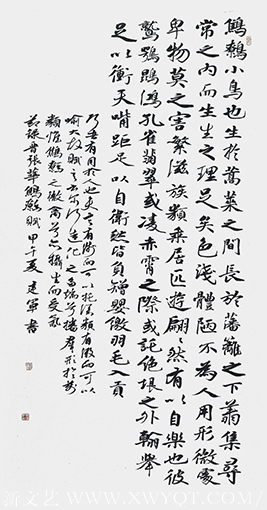 鷦鷯小鳥也生於蒿萊之間長於藩籬之下翔集尋
常之内而生生之理足矣色淺體陋不為人用形微處
卑物莫之害繁滋族類乘居匹遊翩翩然有以自樂也彼
鷲鶚鵾鴻孔雀翡翠或凌赤霄之際或託絕垠之外翰舉
足以衝天嘴距足以自衛然皆負矰嬰繳羽毛入貢
何者有用於人也夫言有淺而可以託深類有微而可以
喻大故賦之云尔何造化之多端兮播群形於萬
類惟鷦鷯之微禽兮亦攝生而受氣
節錄晉張華鷦鷯賦 甲午夏 建軍書
新文艺 WWW.XWYQT.COM/